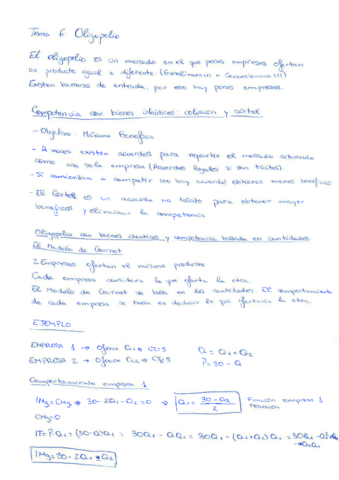 Tema 6: Oligopolio
El oligopolio es un mercado en el que pocas empresas ofertan
un producto igual o diferente. (Gasolineras (=) - Concesionarios (≠))
Existen barreras de entrada, por eso hay pocas empresas.
Competencia con bienes idénticos: colusión y cártel
- Objetivo: Máximo Beneficio
- A veces existen acuerdos para repartir el mercado actuando
como una sola empresa (Acuerdos legales si son tácitos).
- Si comienzan a competir (no hay acuerdo) obtienen menos beneficios
- El Cártel es un acuerdo no tácito para obtener mayor
beneficios y eliminar la competencia
Oligopolio con bienes identicos y competencia basada en cantidades.
El Modelo de Cournot
2 Empresas ofertan el mismo producto
Cada empresa considera lo que oferta la otra.
El Modelo de Cournot se basa en las cantidades. El comportamiento
de cada empresa se basa en deducir lo que ofertaria la otra.
EJEMPLO
EMPRESA 1 → Ofrece Q1 Q = Q1+Q2
EMPRESA 2 → Ofrece Q2 P = 30-Q
Comportamiento empresa 1
IMg = CMg → 30-2Q1-Q2 = 0 → Q1 = 30-Q2 / 2 Función empresa 1 reacción
CMg=0
IT = P·Q1 = (30-Q)Q1 = 30Q1 - QQ1 = 30Q1 - (Q1+Q2) Q1 = 30Q1-Q1²-Q2Q1
IMg = 30-2Q1-Q2